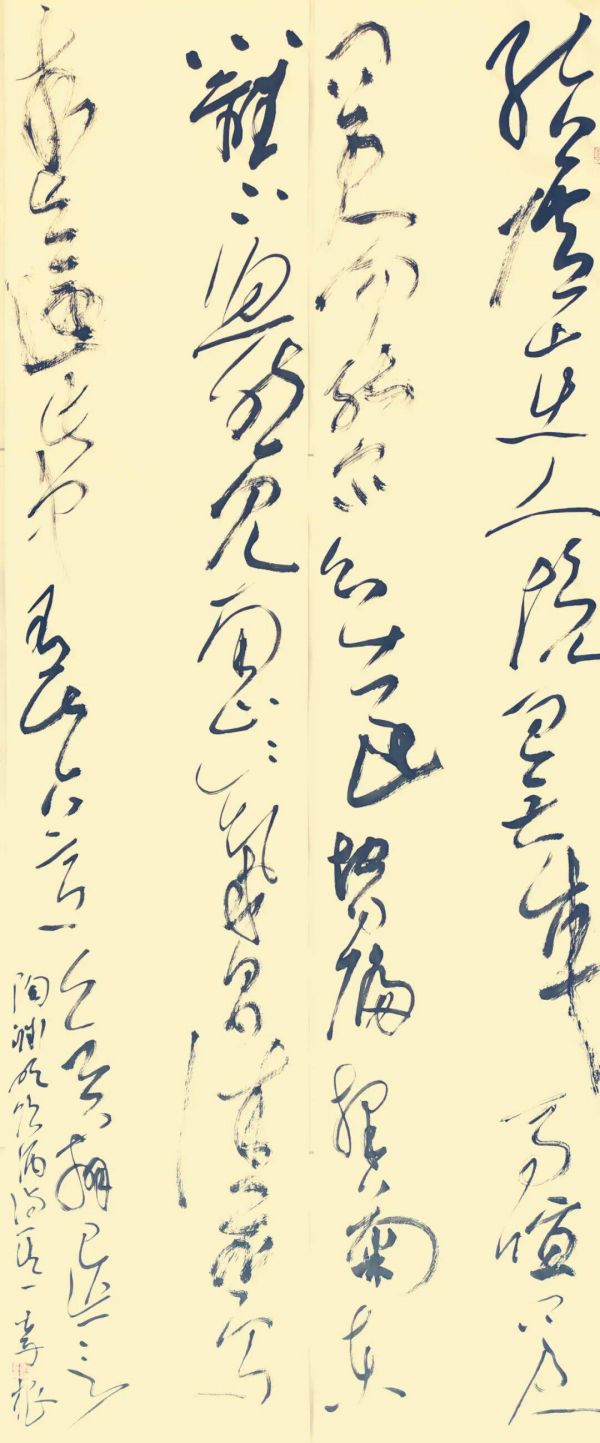 結廬在人境而無車馬喧
問君何能爾心遠地自偏採菊東
籬下悠然見南山〻氣日夕佳飛鳥
相與還此中有真意欲辨已忘言
陶淵明飲酒詩一李